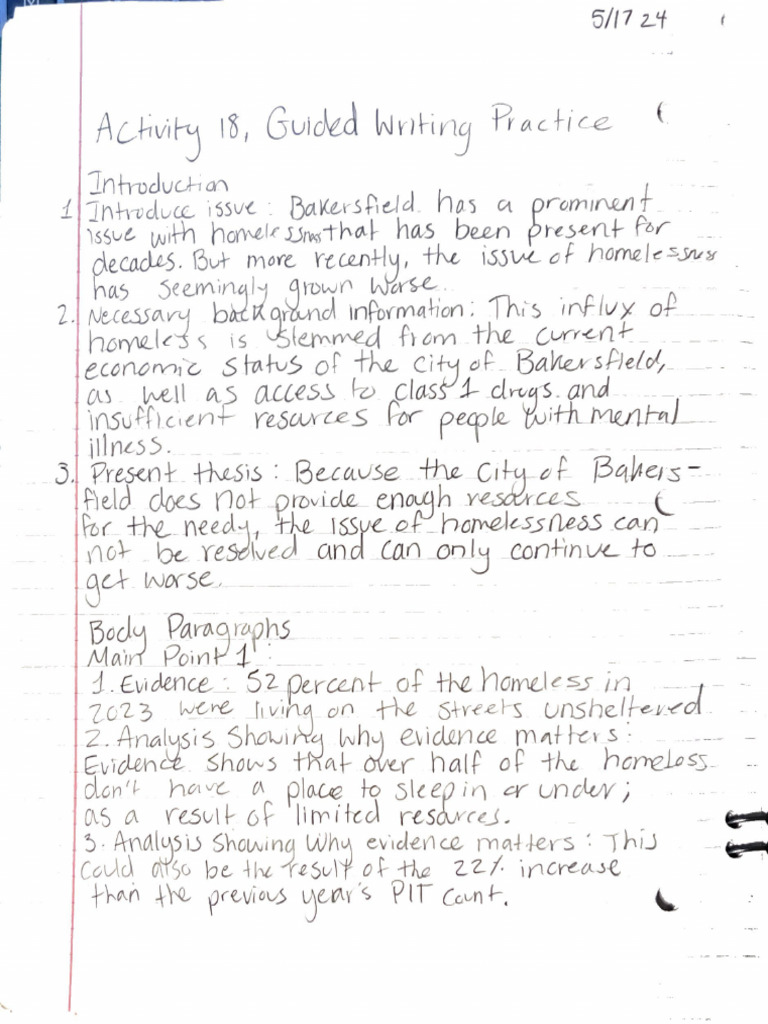 5/17 24
Activity 18, Guided Writing Practice
Introduction
1 Introduce issue : Bakersfield has a prominent
issue with homelessness that has been present for
decades. But more recently, the issue of homelessness
has seemingly grown worse.
2. Necessary background information: This influx of
homeless is stemmed from the current
economic status of the city of Bakersfield,
as well as access to class 1 drugs and
insufficient resources for people with mental
illness.
3. Present thesis : Because the City of Bakers-
field does not provide enough resources
for the needy, the issue of homelessness can
not be resolved and can only continue to
get worse.
Body Paragraphs
Main Point 1 :
1. Evidence : 52 percent of the homeless in
2023 were living on the streets unsheltered
2. Analysis Showing Why evidence matters :
Evidence shows that over half of the homeless
don't have a place to sleep in or under;
as a result of limited resources.
3. Analysis Showing Why evidence matters : This
could also be the result of the 22% increase
than the previous year's PIT Count.